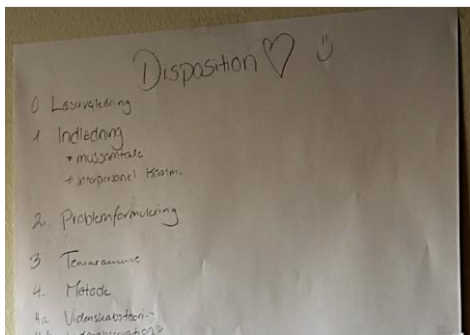 Disposition ♡ ☺
0 Læsevejledning
1 Indledning
* mussamtale
* interpersonel Komm.
2. Problemformulering
3 Temaramme
4. Metode
4a Videnskabsteori